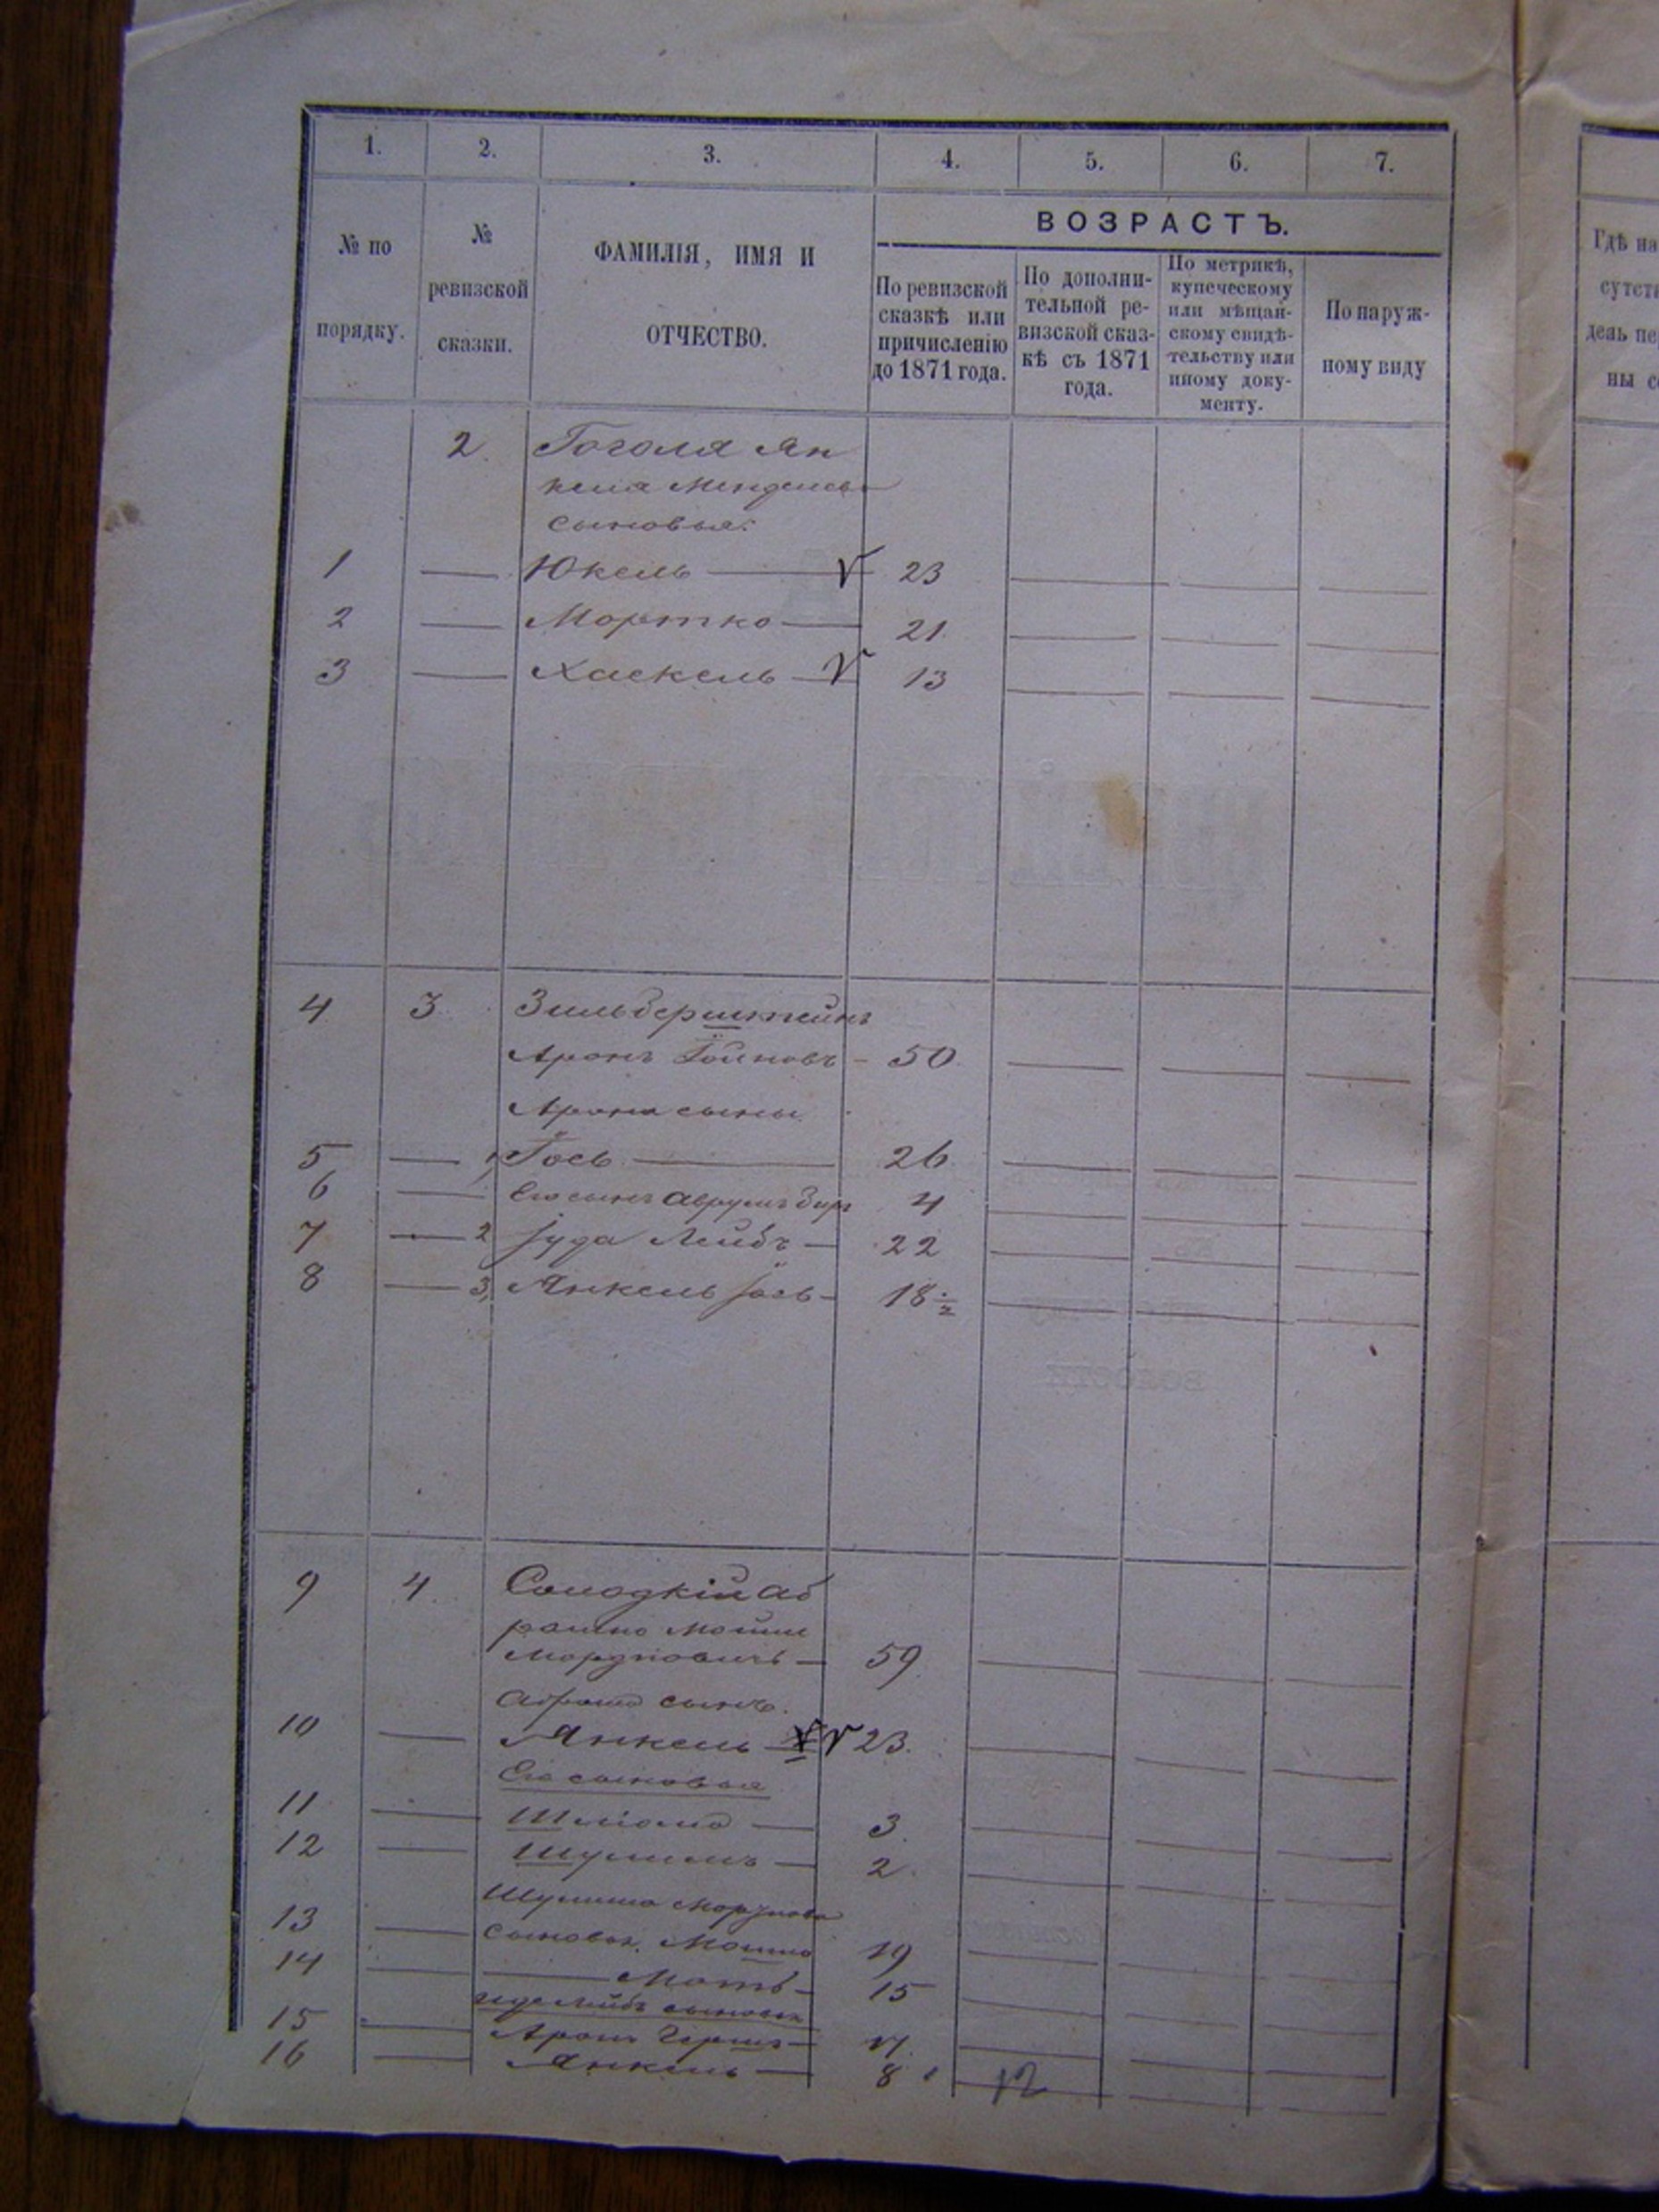 1. 2. 3. 4. 5. 6. 7.
ВОЗРАСТЪ.
№ по
порядку.
№
ревизской
сказки.
ФАМИЛІЯ, ИМЯ И
ОТЧЕСТВО.
По ревизской
сказкѣ или
причисленію
до 1871 года.
По дополни-
тельной ре-
визской сказ-
кѣ съ 1871
года.
По метрикѣ,
купеческому
или мѣщан-
скому свидѣ-
тельству или
иному доку-
менту.
По наруж-
ному виду
Гдѣ на
сутст
день пе
ны с
2. Гоголя Ян
келя Менделев
сыновья:
1 — Юкель — V 23
2 — Мортко — 21
3 — Хаскель — V 13
4 3 Зильберштейнъ
Аронъ Іойновъ — 50
Арона сыны
5 — 1, Іось — 26
6 — Его сынъ Аврумъ 4
7 — 2 Іуда Лейбъ — 22
8 — 3, Янкель Іось — 18 ½
9 4. Солодкій Аб
рамко Мошко
Мордковичъ — 59
Абрама сынъ.
10 — Янкель V 23.
Его сыновья
11 — Шліома — 3.
12 — Шулимъ — 2.
Шулима Мордкова
13 — сыновья. Мошко 19
14 — Моть — 15
Лейбъ сыновья
15 — Аронъ Гершъ —
16 — Янкель — 8 12